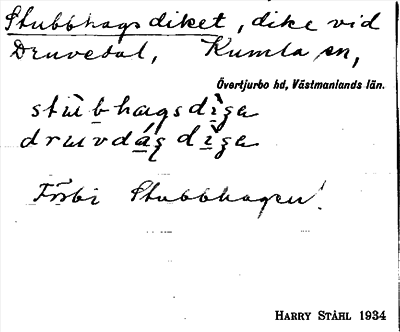 Stubbhagsdiket, dike vid
Druvedal, Kumla sn,
Övertjurbo hd, Västmanlands län.
stùbhagsdìga
druvdáɋ dìga
Förbi Stubbhagen!
HARRY STÅHL 1934